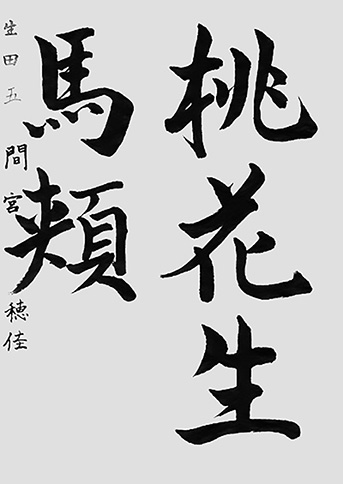 桃花生
馬頬
生田五 間宮 穂佳